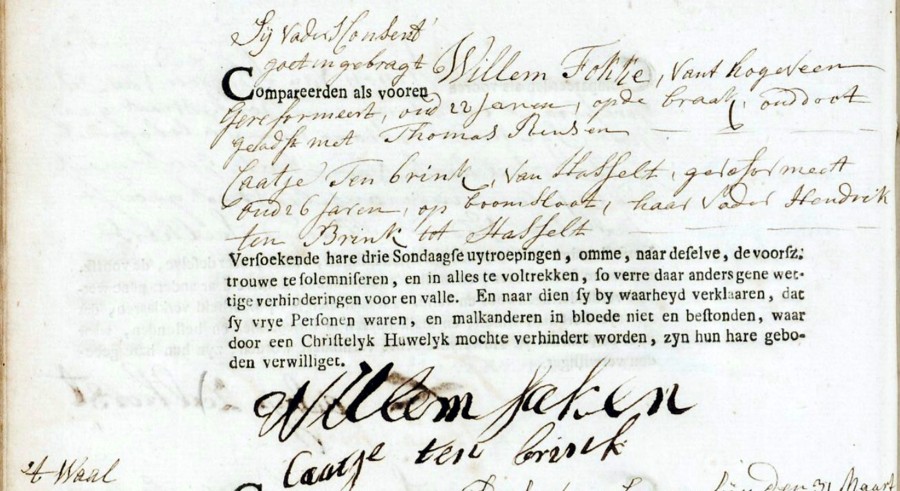 Sij vaders Consent
goet ingebragt Willem Fokke, vant hogeveen
Compareerden als vooren
Gereformeert, oud 22 Jaren, opde braak, ouddoot
geadst met Thomas
Caatje Ten brink, van Hasselt, gereformeert
oud 26 Jaren, op boomsloot, haar Vader Hendrik
ten Brink tot Hasselt
Versoekende hare drie Sondaagse uytroepingen, omme, naar deselve, de voorsz:
trouwe te solemniseren, en in alles te voltrekken, so verre daar anders gene wet-
tige verhinderingen voor en valle. En naar dien sy by waarheyd verklaaren, dat
sy vrye Personen waren, en malkanderen in bloede niet en bestonden, waar
door een Christelyk Huwelyk mochte verhindert worden, zyn hun hare gebo-
den verwilliget.
Willem
Caatje ten brink
't Waal
den 31 Maart